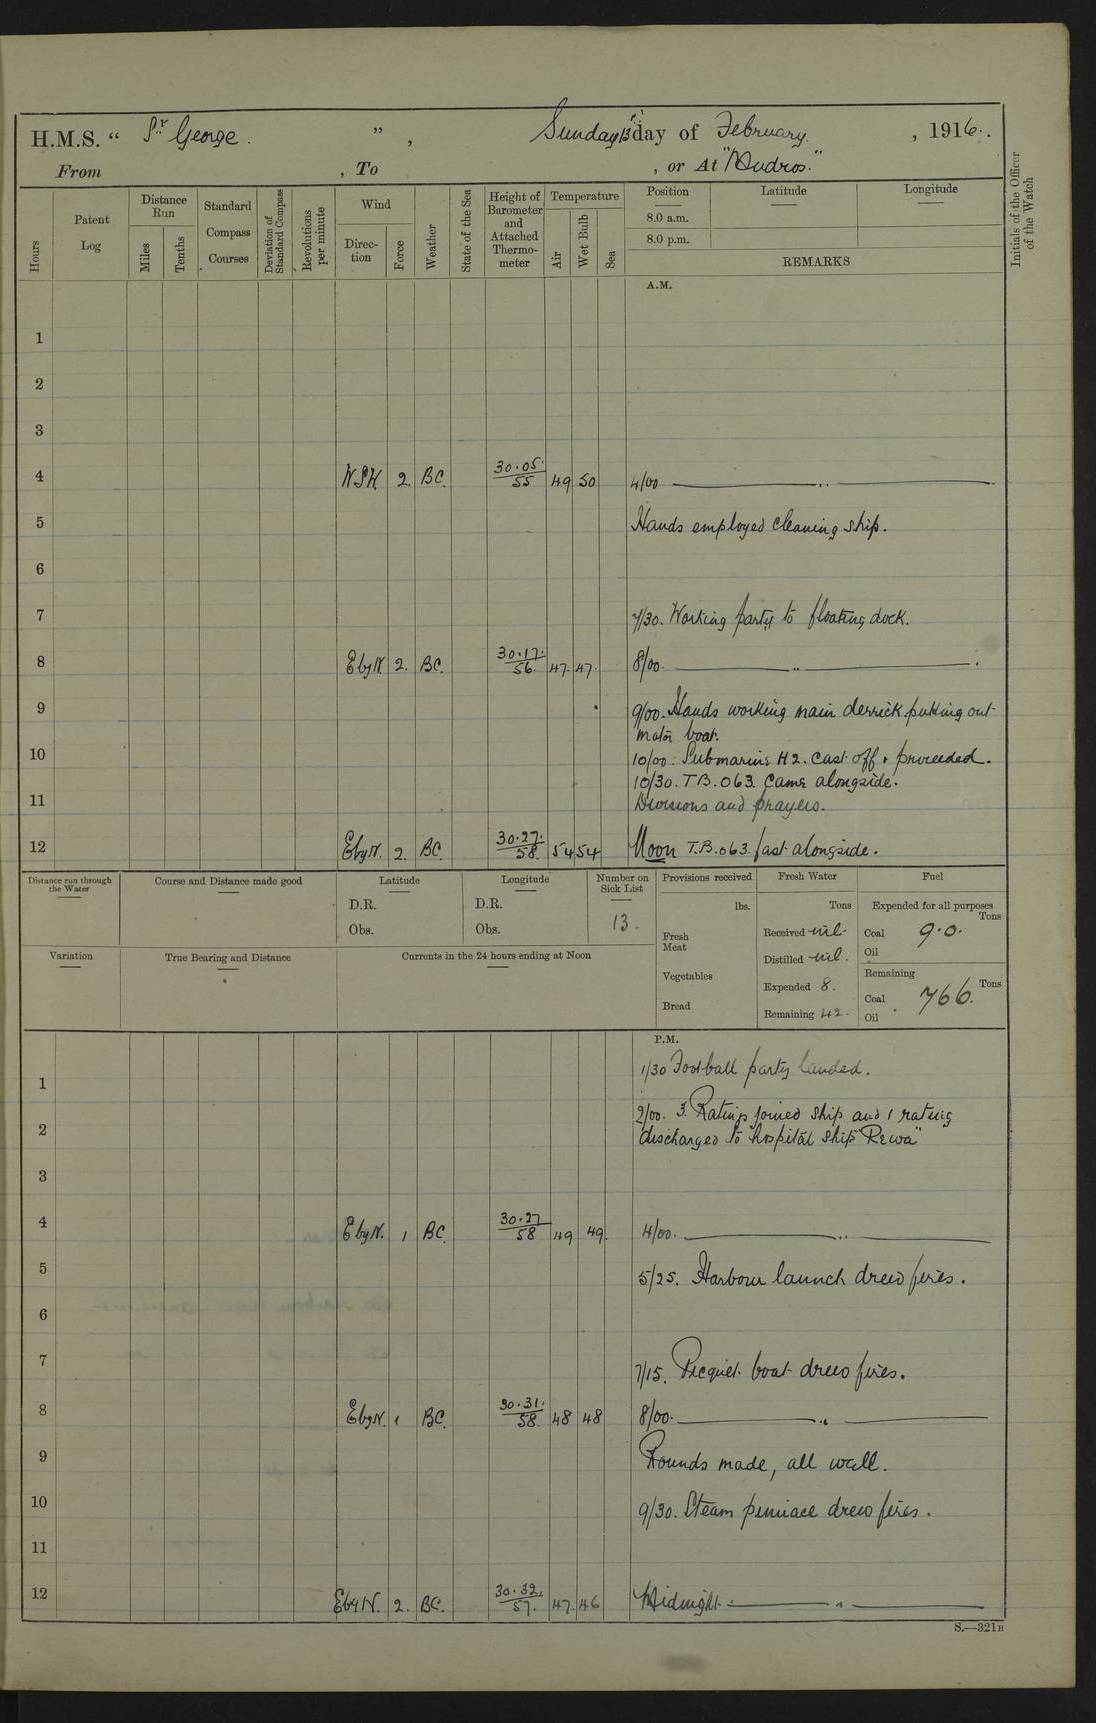 H.M.S. “ St George. ” , Sunday 13th day of February. , 1916.
From , To , or At "Mudros."
Hours
Patent Log
Distance Run
Miles
Tenths
Standard Compass Courses
Deviation of Standard Compass
Revolutions per minute
Wind
Direc- tion
Force
Weather
State of the Sea
Height of Barometer and Attached Thermo- meter
Temperature
Air
Wet Bulb
Sea
Position
8.0 a.m.
8.0 p.m.
Latitude
Longitude
REMARKS
Initials of the Officer of the Watch
A.M.
1
2
3
4 WSW 2. BC. 30.05. 55 49 50 4/00
5 Hands employed cleaning ship.
6
7 7/30. Working party to floating dock.
8 EbyN 2. BC. 30.17. 56. 47. 47. 8/00.
9 9/00. Hands working main derrick putting out
motor boat.
10 10/00. Submarine H2. cast off & proceeded.
10/30. T.B. 063. came alongside.
11 Divisions and prayers.
12 EbyN. 2. BC. 30.27. 58. 54 54 Noon T.B. 063. fast alongside.
Distance run through the Water
Course and Distance made good
Latitude
D.R.
Obs.
Longitude
D.R.
Obs.
Number on Sick List
13.
Provisions received
lbs.
Fresh Meat
Vegetables
Bread
Fresh Water
Tons
Received nil.
Distilled nil.
Expended 8.
Remaining 42.
Fuel
Expended for all purposes
Tons
Coal 9.0.
Oil
Remaining
Tons
Coal 766.
Oil
Variation
True Bearing and Distance
Currents in the 24 hours ending at Noon
P.M.
1 1/30 Football party landed.
2 2/00. 3. Ratings joined ship and 1 rating
discharged to hospital ship "Rewa"
3
4 EbyN. 1 BC. 30.27 58 49 49. 4/00.
5 5/25. Harbour launch drew fires.
6
7 7/15. Picquet boat drew fires.
8 EbyN. 1 BC. 30.31. 58. 48 48 8/00.
9 Rounds made, all well.
10 9/30. Steam pinnace drew fires.
11
12 EbyN. 2. BC. 30.32. 57. 47. 46 Midnight
S.—321B